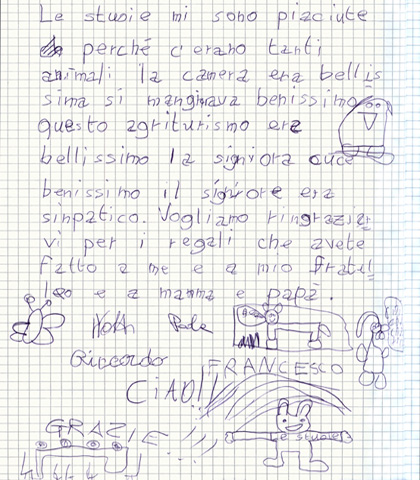 Le stusie mi sono piaciute
perché c'erano tanti
animali la camera era bellis
sima si mangiava benissimo
questo agriturismo era
bellissimo la signiora cuce
benissimo il signiore era
sinpatico. Vogliamo ringraziar
vi per i regali che avete
fatto a me e a mio fratel
lo e a mamma e papà.
Riccardo FRANCESCO
CIAO!!
GRAZIE!!!
Le stusie